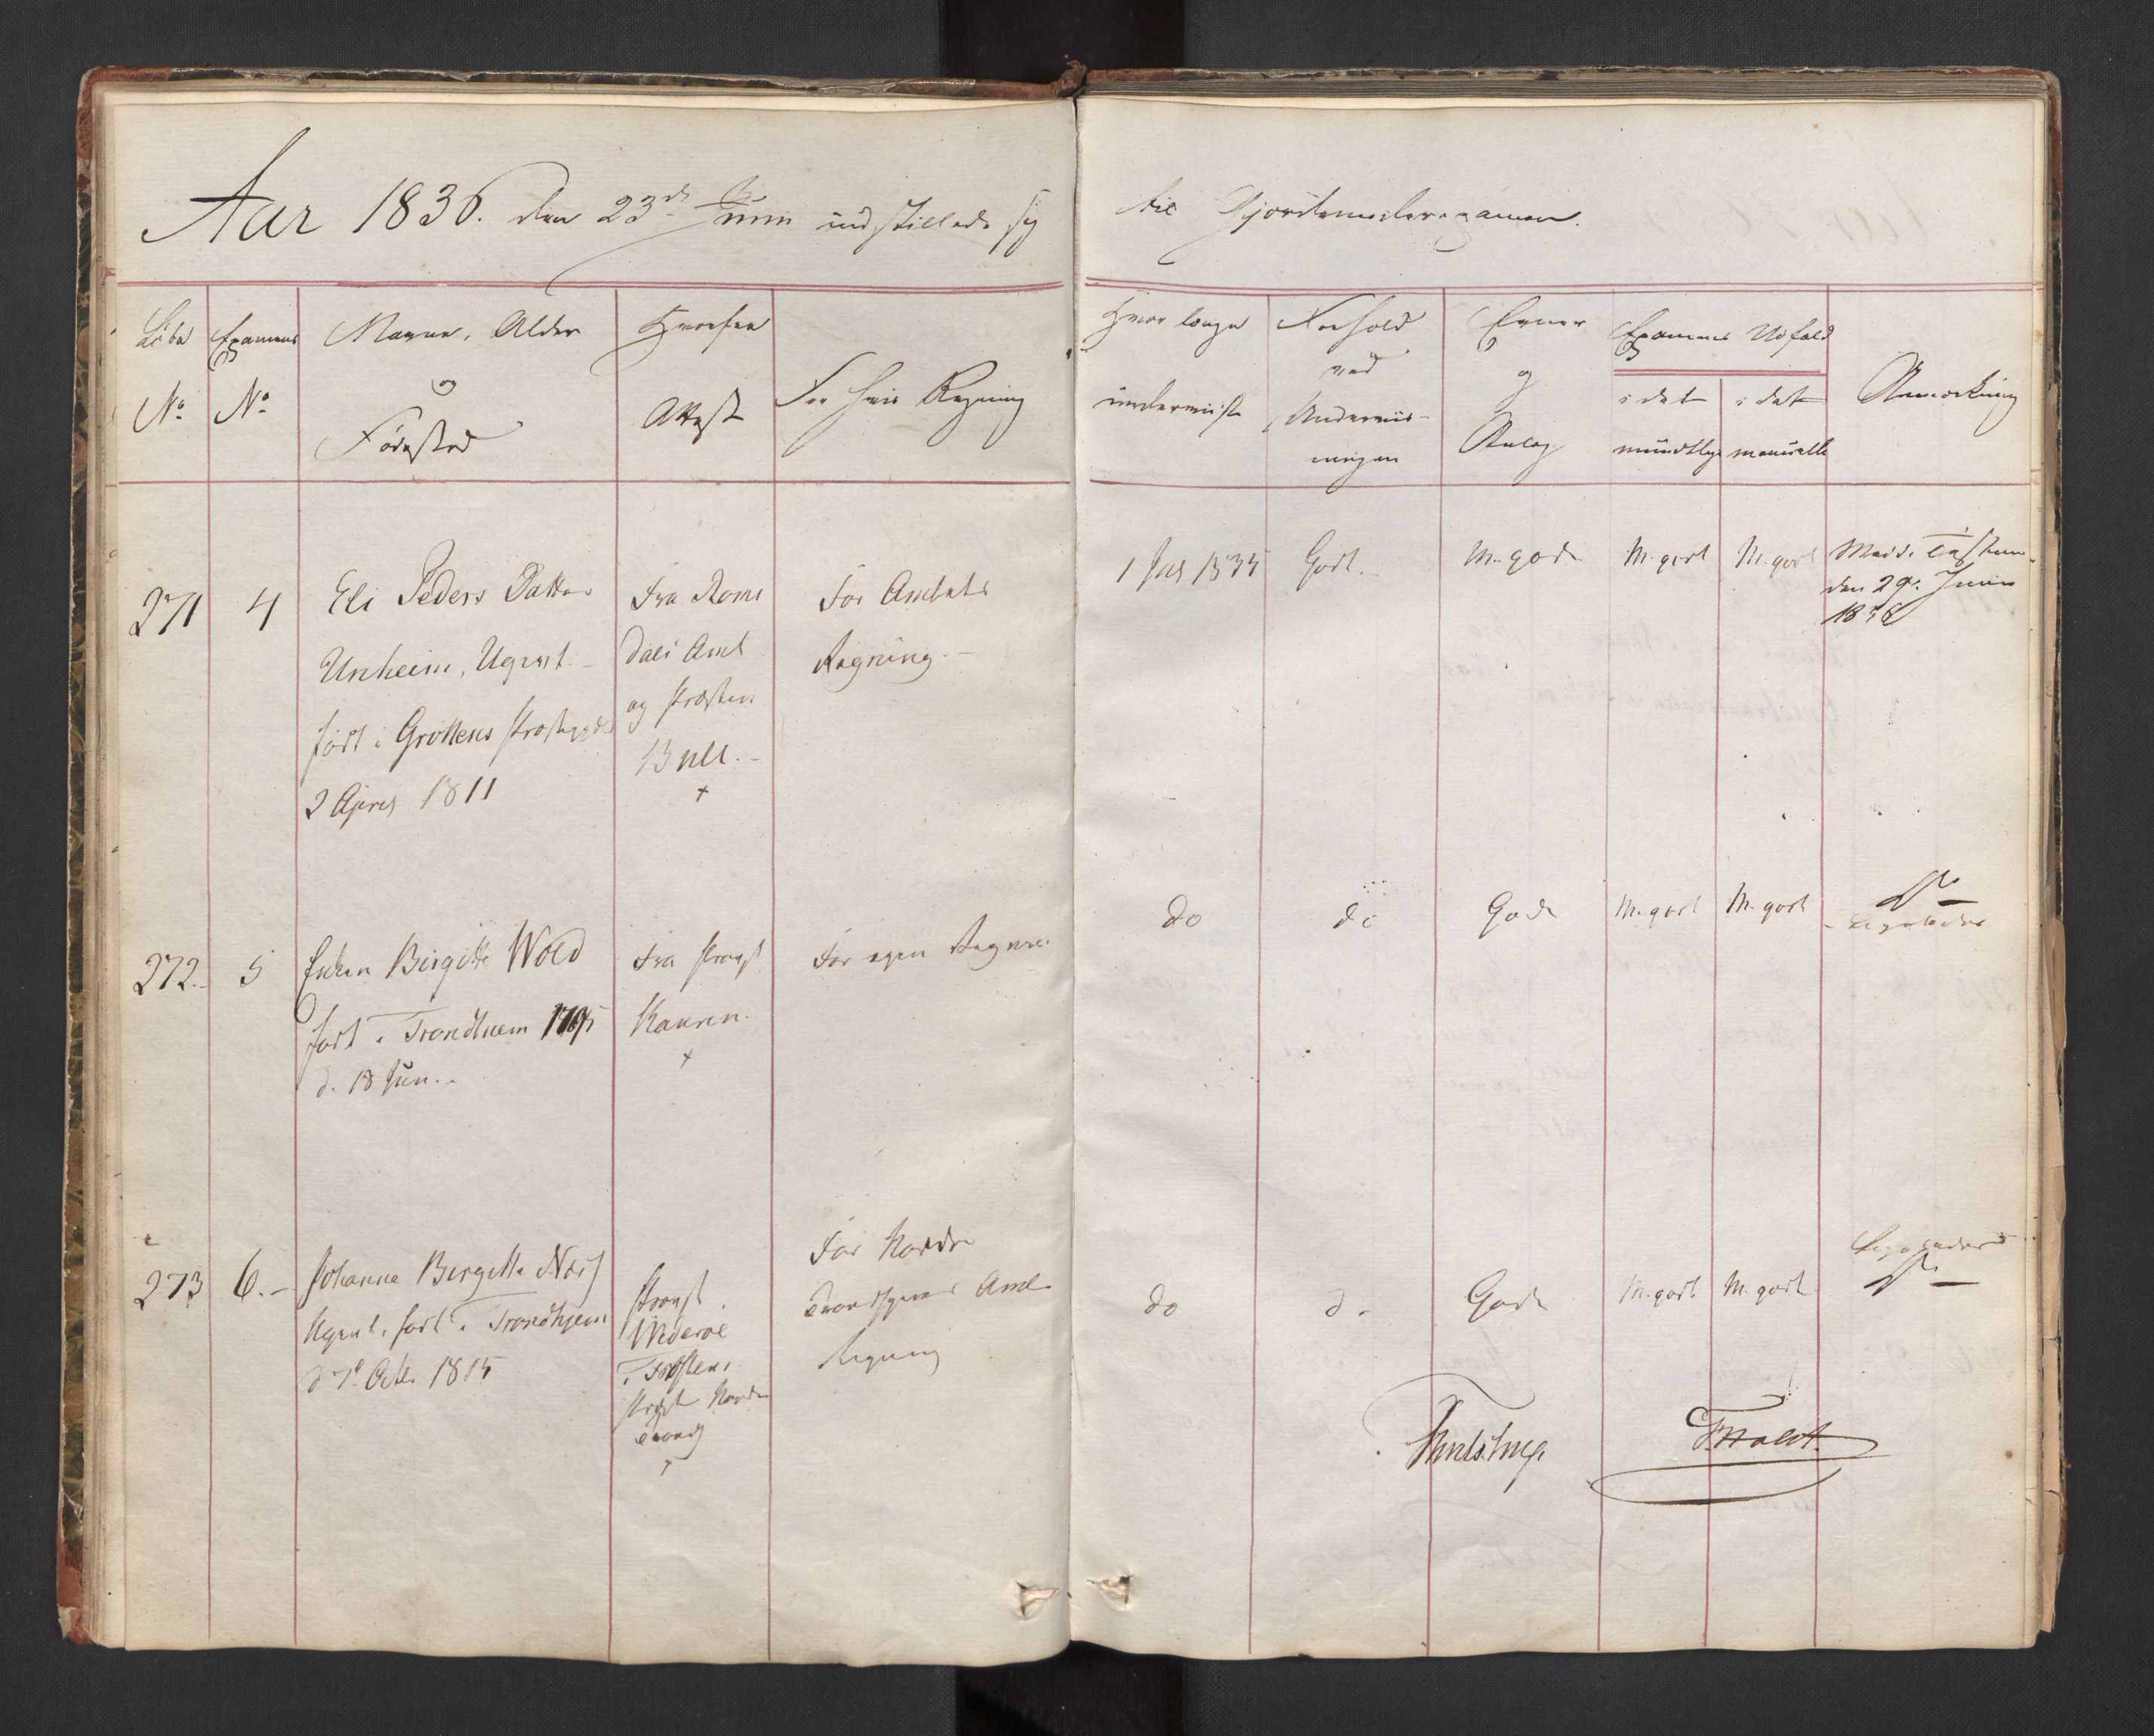 Aar 1836. den 23de Juni indstillede sig
til Gjordemoderexamen.
Löbe
No
Examens
No
Navne, Alder
og
Födested
Hvorfra
Attest
For hvis Regning
Hvor længe
underviist
Forhold
ved
Underviis-
ningen
Evner
og
Anlæg
Examens Udfald
i det
mundtlige
i det
manuelle
Anmærkning
271
4
Eli Peders Datter
Unheim, Ugivt
födt i Gröttens Præstegjeld
2 April 1811
Fra Roms
dals Amt
og Præsten
Bull.
+
For Ambets
Regning.
1 Juli 1835
Godt.
M. gode
M. godt
M. godt
den 29. Juni
1836
272.
5
Enken Birgitte Wold
födt i Trondhiem 1795
d. 18 Jun.
Fra Provst
Kauren.
+
For egen Regning
do
do
Gode
M. godt
M. godt
273
6.
Johanne Birgitte
Ugivt, födt i Trondhjem
d 7e Octbr 1815
Provst
Wideröe
For Nordre
Trondhjems Amts
Regning
do
do
Gode
M. godt
M. godt